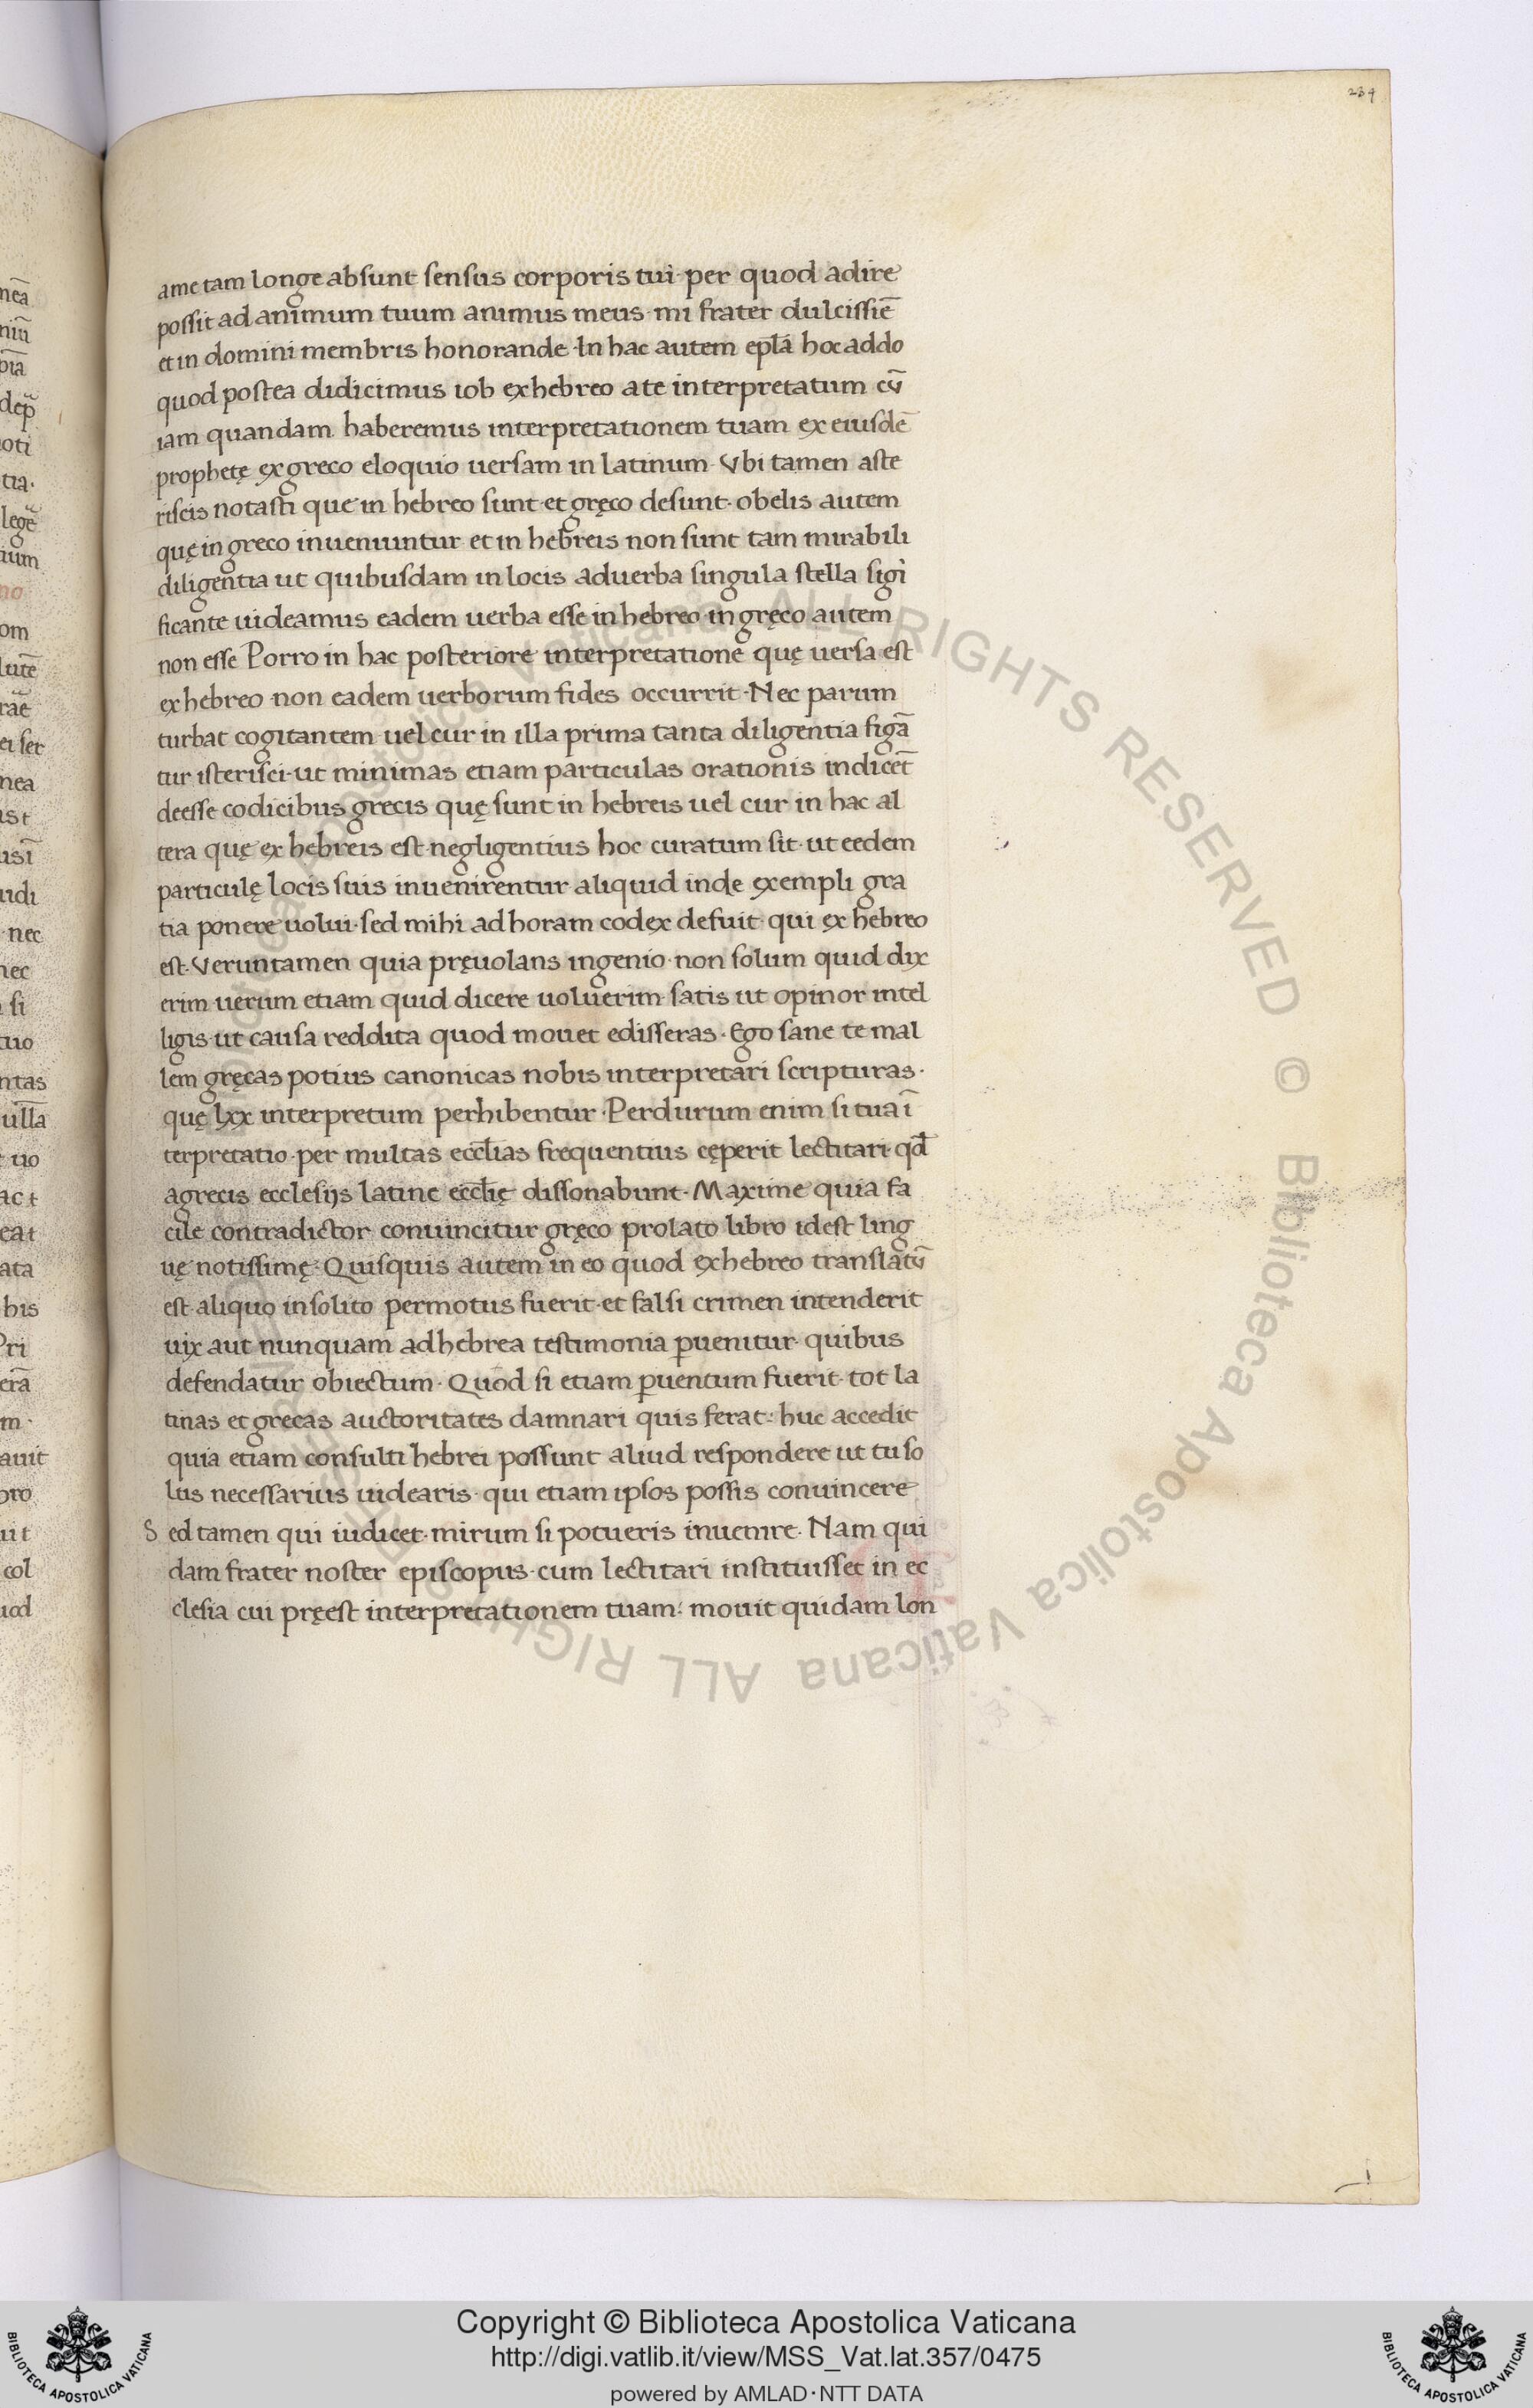 234
ame tam longe absunt sensus corporis tui· per quod adire
possit ad animum tuum animus meus· mi frater dulcissiē
et in domini membris honorande· In hac autem epl̄a hoc addo
quod postea didicimus iob ex hebreo a te interpretatum cū
iam quandam haberemus interpretationem tuam ex eiusdē
prophetę ex greco eloquio uersam in latinum· Vbi tamen aste
riscis notasti que in hebreo sunt· et gręco desunt· obelis autem
quę in greco inueniuntur et in hebreis non sunt tam mirabili
diligentia ut quibusdam in locis ad uerba singula stella sigi
ficante uideamus eadem uerba esse in hebreo· in gręco autem
non esse Porro in hac posteriore interpretatione quę uersa est
ex hebreo non eadem uerborum fides occurrit· Nec parum
turbat cogitantem uel cur in illa prima tanta diligentia figā
tur isterisci· ut minimas etiam particulas orationis indicēt
deesse codicibus grecis quę sunt in hebreis uel cur in hac al
tera quę ex hebreis est negligentius hoc curatum sit· ut eedem
particulę locis suis inuenirentur aliquid inde exempli gra
tia ponere uolui· sed mihi ad horam codex defuit· qui ex hebreo
est· Veruntamen quia pręuolans ingenio· non solum quid dix
erim uerum etiam quid dicere uoluerim· satis ut opinor intel
ligis· ut causa reddita quod mouet edisseras· Ego sane te mal
lem gręcas potius canonicas nobis interpretari scripturas·
quę lxx interpretum perhibentur· Perdurum enim si tua ī
terpretatio· per multas eccl̄ias frequentius cęperit lectitari· qd̄
a grecis ecclesijs latine eccl̄ię dissonabunt· Maxime quia fa
cile contradictor conuincitur gręco prolato libro id est ling
uę notissimę· Quisquis autem in eo quod ex hebreo translatū
est aliquo insolito permotus fuerit· et falsi crimen intenderit
uix aut nunquam ad hebrea testimonia ꝑuenitur· quibus
defendatur obiectum· Quod si etiam ꝑuentum fuerit· tot la
tinas et grecas auctoritates damnari quis ferat: huc accedit
quia etiam consulti hebrei possunt aliud respondere ut tu so
lus necessarius uidearis· qui etiam ipsos possis conuincere
Sed tamen qui iudicet· mirum si potueris inuenire· Nam qui
dam frater noster episcopus· cum lectitari instituisset in ec
clesia cui pręest interpretationem tuam: mouit quidam lon
Biblioteca Apostolica Vaticana ALL RIGHTS RESERVED © Biblioteca Apostolica Vaticana ALL RIGHTS RESERVED ©
BIBLIOTECA APOSTOLICA VATICANA
Copyright © Biblioteca Apostolica Vaticana
http://digi.vatlib.it/view/MSS_Vat.lat.357/0475
powered by AMLAD·NTT DATA
BIBLIOTECA APOSTOLICA VATICANA